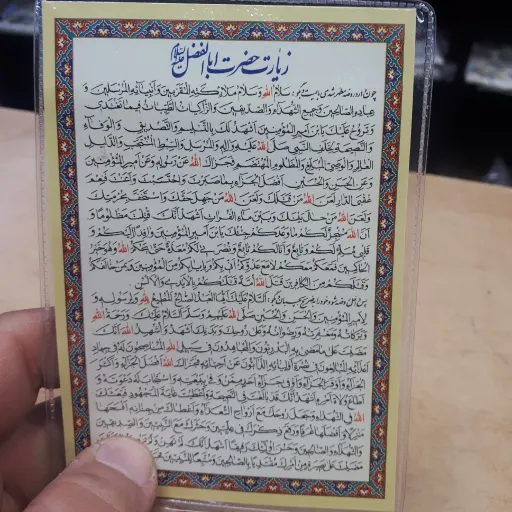 زیارت حضرت اباالفضل علیه‌السلام
سَلامُ اللهِ وَسَلامُ مَلائِکَتِهِ المُقَرَّبینَ وَاَنبِیائِهِ المُرسَلینَ وَ
عِبادِهِ الصّالِحینَ وَجَمیعِ الشُّهَداءِ وَالصِّدّیقینَ وَالزّاکیاتُ الطَّیِّباتُ فیما تَغتَدی
وَتَروُحُ عَلَیکَ یَابنَ اَمیرِالمُؤمِنینَ اَشهَدُ لَکَ بِالتَّسلیمِ وَالتَّصدیقِ وَالوَفاءِ
وَالنَّصیحَةِ لِخَلَفِ النَّبِیِّ صَلَّی اللهُ عَلَیهِ وَآلِهِ المُرسَلِ وَالسِّبطِ المُنتَجَبِ وَالدَّلیلِ
العالِمِ وَالوَصِیِّ المُبَلِّغِ وَالمَظلومِ المُهتَضَمِ فَجَزاکَ اللهُ عَن رَسولِهِ وَعَن اَمیرِالمُؤمِنینَ
وَعَنِ الحَسَنِ وَالحُسَینِ اَفضَلَ الجَزاءِ بِما صَبَرتَ وَاحتَسَبتَ وَاَعَنتَ فَنِعمَ
عُقبَی الدّارِ لَعَنَ اللهُ مَن قَتَلَکَ وَلَعَنَ اللهُ مَن جَهِلَ حَقَّکَ وَاستَخَفَّ بِحُرمَتِکَ
وَلَعَنَ اللهُ مَن حالَ بَینَکَ وَبَینَ ماءِ الفُراتِ اَشهَدُ اَنَّکَ قُتِلتَ مَظلوماً وَ
اَنَّ اللهَ مُنجِزٌ لَکُم ما وَعَدَکُم جِئتُکَ یَابنَ اَمیرِالمُؤمِنینَ وافِداً اِلَیکُم وَ
قَلبی مُسَلِّمٌ لَکُم وَتابِعٌ وَاَنَا لَکُم تابِعٌ وَنُصرَتی لَکُم مُعَدَّةٌ حَتّی یَحکُمَ اللهُ وَهُوَ خَیرُ
الحاکِمینَ فَمَعَکُم مَعَکُم لا مَعَ عَدُوِّکُم اِنّی بِکُم وَبِاِیابِکُم مِنَ المُؤمِنینَ وَبِمَن خالَفَکُم
وَقَتَلَکُم مِنَ الکافِرینَ قَتَلَ اللهُ اُمَّةً قَتَلَتکُم بِالاَیدی وَالاَلسُنِ
اَلسَّلامُ عَلَیکَ اَیُّهَا العَبدُ الصّالِحُ المُطیعُ لِلّهِ وَلِرَسولِهِ وَ
لِاَمیرِالمُؤمِنینَ وَالحَسَنِ وَالحُسَینِ صَلَّی اللهُ عَلَیهِم وَسَلَّمَ اَلسَّلامُ عَلَیکَ وَرَحمَةُ اللهِ
وَبَرَکاتُهُ وَمَغفِرَتُهُ وَرِضوانُهُ وَعَلی روحِکَ وَبَدَنِکَ اَشهَدُ وَاُشهِدُ اللهَ اَنَّکَ
مَضَیتَ عَلی ما مَضی بِهِ البَدرِیّونَ وَالمُجاهِدونَ فی سَبیلِ اللهِ المُناصِحونَ لَهُ فی جِهادِ
اَعدائِهِ المُبالِغونَ فی نُصرَةِ اَولِیائِهِ الذّابّونَ عَن اَحِبّائِهِ فَجَزاکَ اللهُ اَفضَلَ الجَزاءِ وَاَکثَرَ
الجَزاءِ وَاَوفَرَ الجَزاءِ وَاَوفی جَزاءِ اَحَدٍ مِمَّن وَفی بِبَیعَتِهِ وَاستَجابَ لَهُ دَعوَتَهُ وَ
اَطاعَ وُلاةَ اَمرِهِ اَشهَدُ اَنَّکَ قَد بالَغتَ فِی النَّصیحَةِ وَاَعطَیتَ غایَةَ المَجهودِ فَبَعَثَکَ
اللهُ فِی الشُّهَداءِ وَجَعَلَ روحَکَ مَعَ اَرواحِ السُّعَداءِ وَاَعطاکَ مِن جِنانِهِ اَفسَحَها
مَنزِلاً وَاَفضَلَها غُرَفاً وَرَفَعَ ذِکرَکَ فی عِلِّیّینَ وَحَشَرَکَ مَعَ النَّبِیّینَ وَالصِّدّیقینَ
وَالشُّهَداءِ وَالصّالِحینَ وَحَسُنَ اُولئِکَ رَفیقاً اَشهَدُ اَنَّکَ لَم تَهِن وَلَم تَنکُل